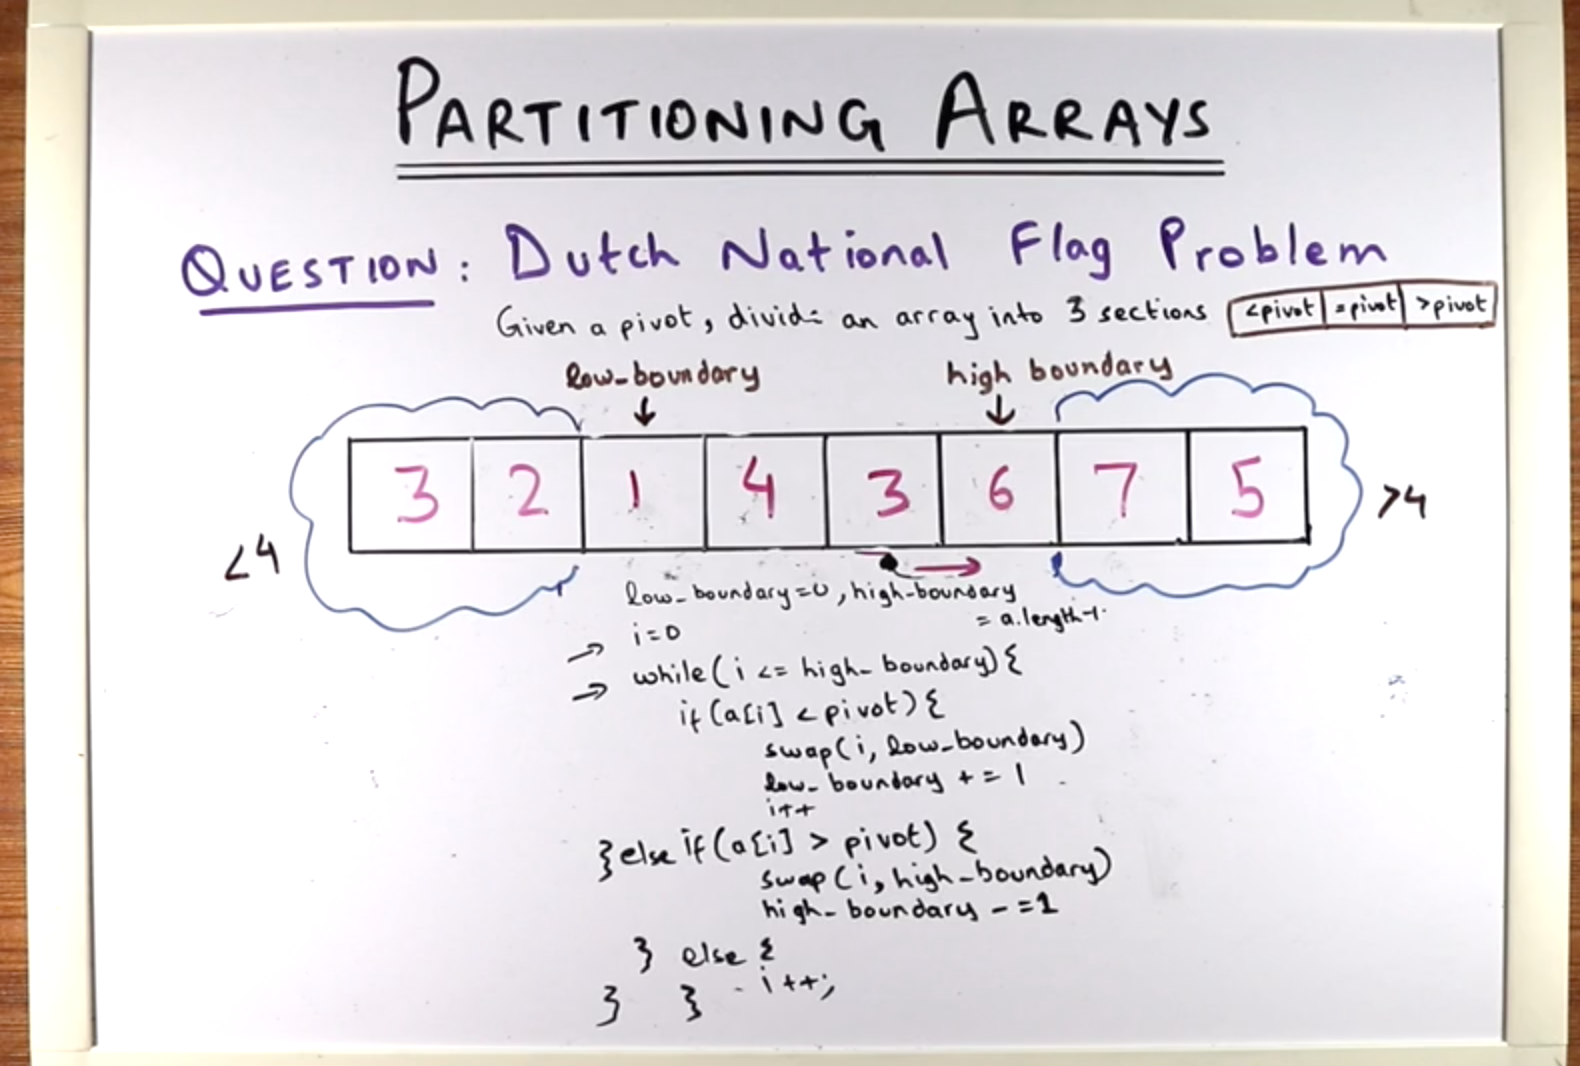 PARTITIONING ARRAYS
QUESTION: Dutch National Flag Problem
Given a pivot, divide an array into 3 sections <pivot =pivot >pivot
low_boundary high boundary
3 2 1 4 3 6 7 5
<4 >4
low_boundary=0, high-boundary
= a.length-1
i=0
while(i <= high_boundary){
if(a[i] < pivot){
swap(i, low_boundary)
low_boundary += 1
i++
}else if(a[i] > pivot) {
swap(i, high_boundary)
high_boundary -=1
} else {
i++;
} }